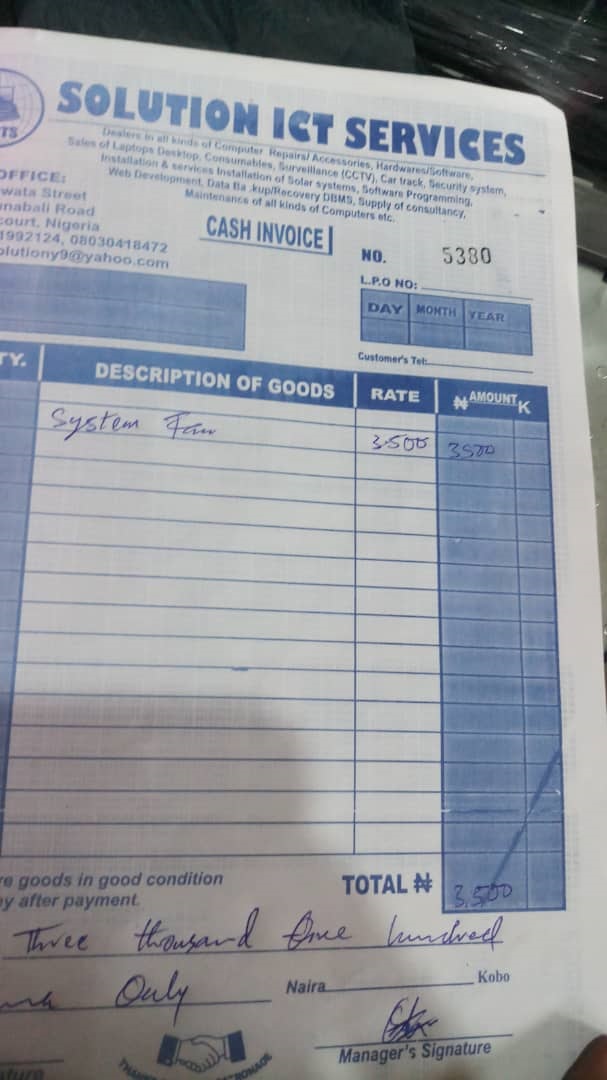 SOLUTION ICT SERVICES
TS
Dealers in all kinds of Computer Repairs/ Accessories, Hardwares/Software,
Sales of Laptops Desktop, Consumables, Surveillance (CCTV), Car track, Security system,
Installation & services Installation of Solar systems, Software Programming,
Web Development, Data Ba kup/Recovery DBMS, Supply of consultancy,
Maintenance of all kinds of Computers etc.
OFFICE:
wata Street
nabali Road
court, Nigeria
1992124, 08030418472
olutiony9@yahoo.com
CASH INVOICE
NO. 5380
L.P.O NO:
DAY MONTH YEAR
Customer's Tel:
TY. DESCRIPTION OF GOODS RATE ₦ AMOUNT K
System Fan 3.500 3500
e goods in good condition
y after payment.
TOTAL ₦ 3,500
Three thousand five hundred
Only Naira Kobo
Manager's Signature